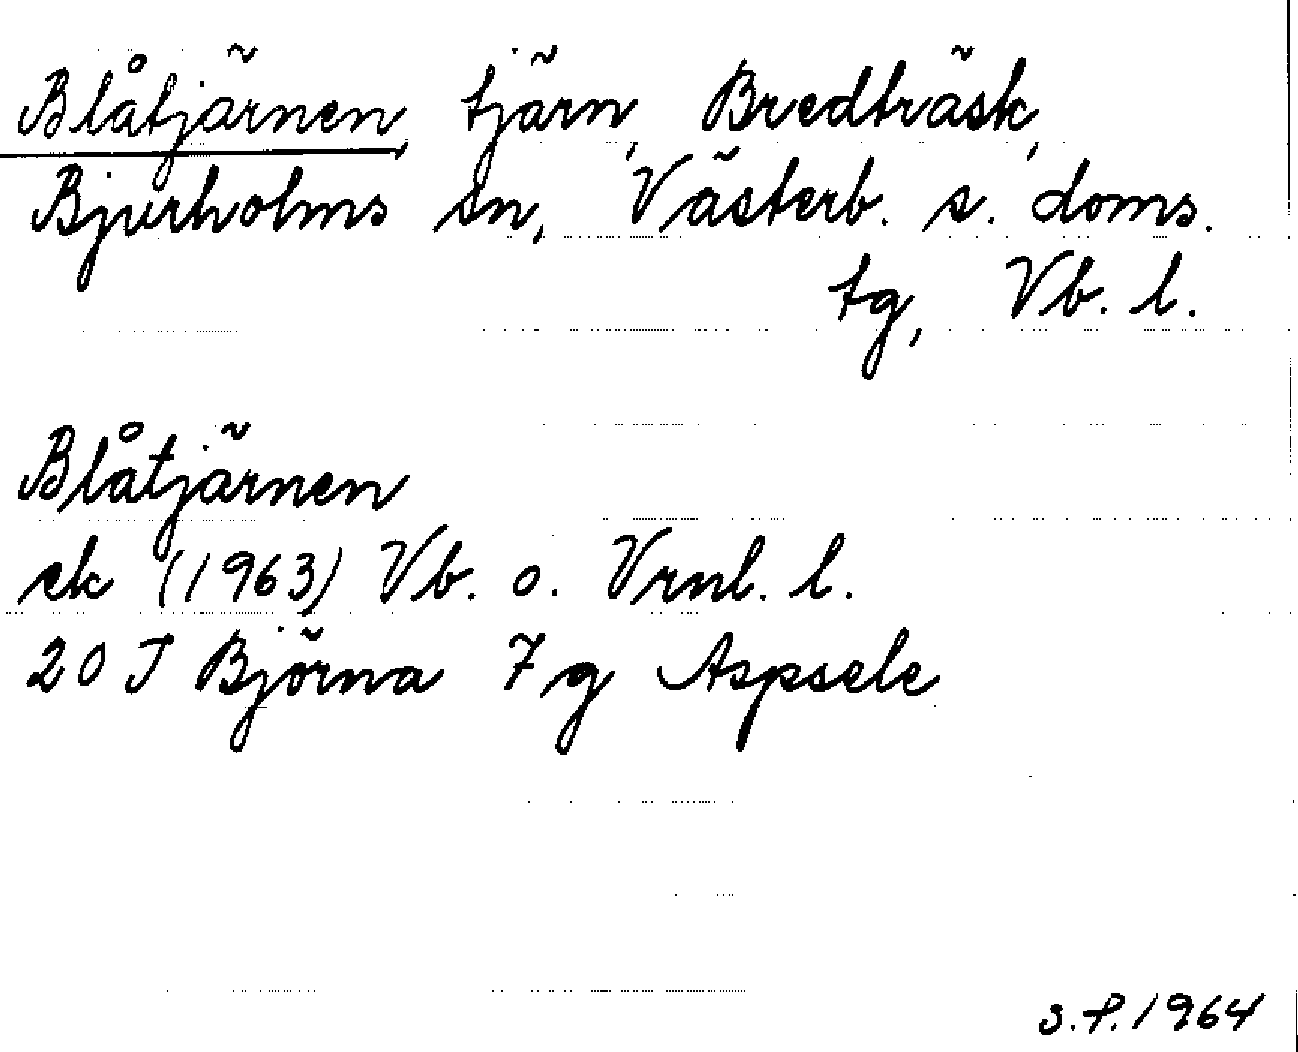 Blåtjärnen, tjärn, Bredträsk,
Bjurholms sn, Västerb. s. doms.
tg, Vb. l.
Blåtjärnen
ek (1963) Vb. o. Vrnl. l.
20 J Björna 7g Aspsele
S.P. 1964